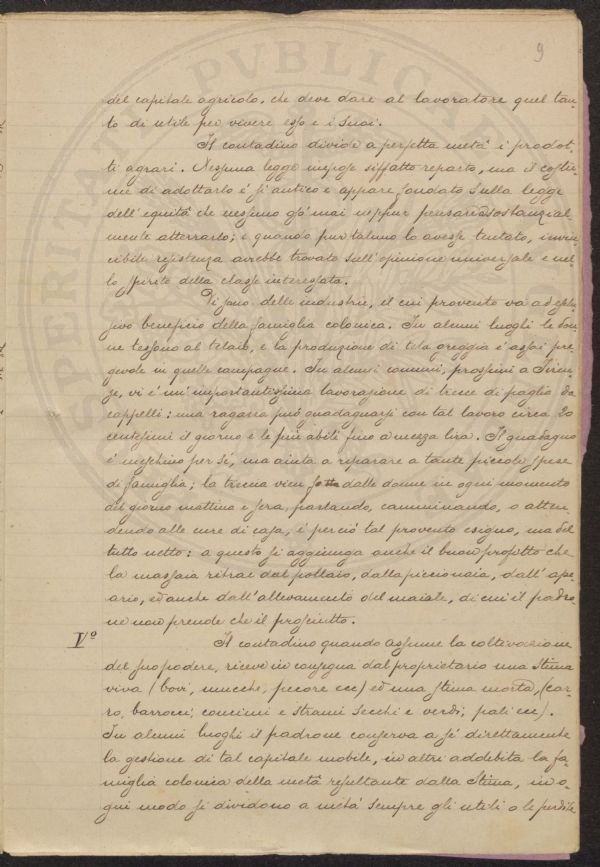 9
del capitale agricolo, che deve dare al lavoratore quel tan-
to di utile per vivere esso e i suoi.
Il contadino divide a perfetta metà i prodot-
ti agrari. Nessuna legge impose siffatto reparto, ma il costu-
me di adottarlo è sì antico e appare fondato sulla legge
dell'equità che nessuno gia mai neppur pensare sostanzial
mente atterrarlo; e quando pur taluno lo avesse tentato, invin-
cibile resistenza avrebbe trovato sull'opinione universale e nel-
lo spirito della classe interessata.
Vi sono delle industrie, il cui provento va ad esclu-
sivo beneficio della famiglia colonica. In alcuni luoghi le don-
ne tessono al telaio, e la produzione di tela greggia è assai pre-
gevole in quelle campagne. In alcuni comuni, prossimi a Firen-
ze, vi è un'importantissima lavorazione di trecce di paglia da
cappelli: una ragazza può guadagnarsi con tal lavoro circa 20
centesimi il giorno e le più abili fino a mezza lira. Il guadagno
è meschino per sé, ma aiuta a riparare a tante piccole spese
di famiglia; la treccia vien fatta dalle donne in ogni momento
del giorno mattina e sera, parlando, camminando, o atten-
dendo alle cure di casa, è perciò tal provento esiguo, ma del
tutto netto: a questo si aggiunga anche il buon profitto che
la massaia ritrae dal pollaio, dalla piccionaia, dall'api-
ario, ed anche dall'allevamento del maiale, di cui il padro-
ne non prende che il prosciutto.
V.º Il contadino quando assume la coltivazione
del suo podere, riceve in consegna dal proprietario una stima
viva (bovi, mucche, pecore ecc) ed una stima morta, (car-
ro, barrocci, concimi e strami secchi e verdi, pali ecc).
In alcuni luoghi il padrone conserva a sé direttamente
la gestione di tal capitale mobile, in altri addebita la fa-
miglia colonica della metà resultante dalla Stima, in o-
gni modo si dividono a metà sempre gli utili o le perdite
SPERITAT PVBLICAE